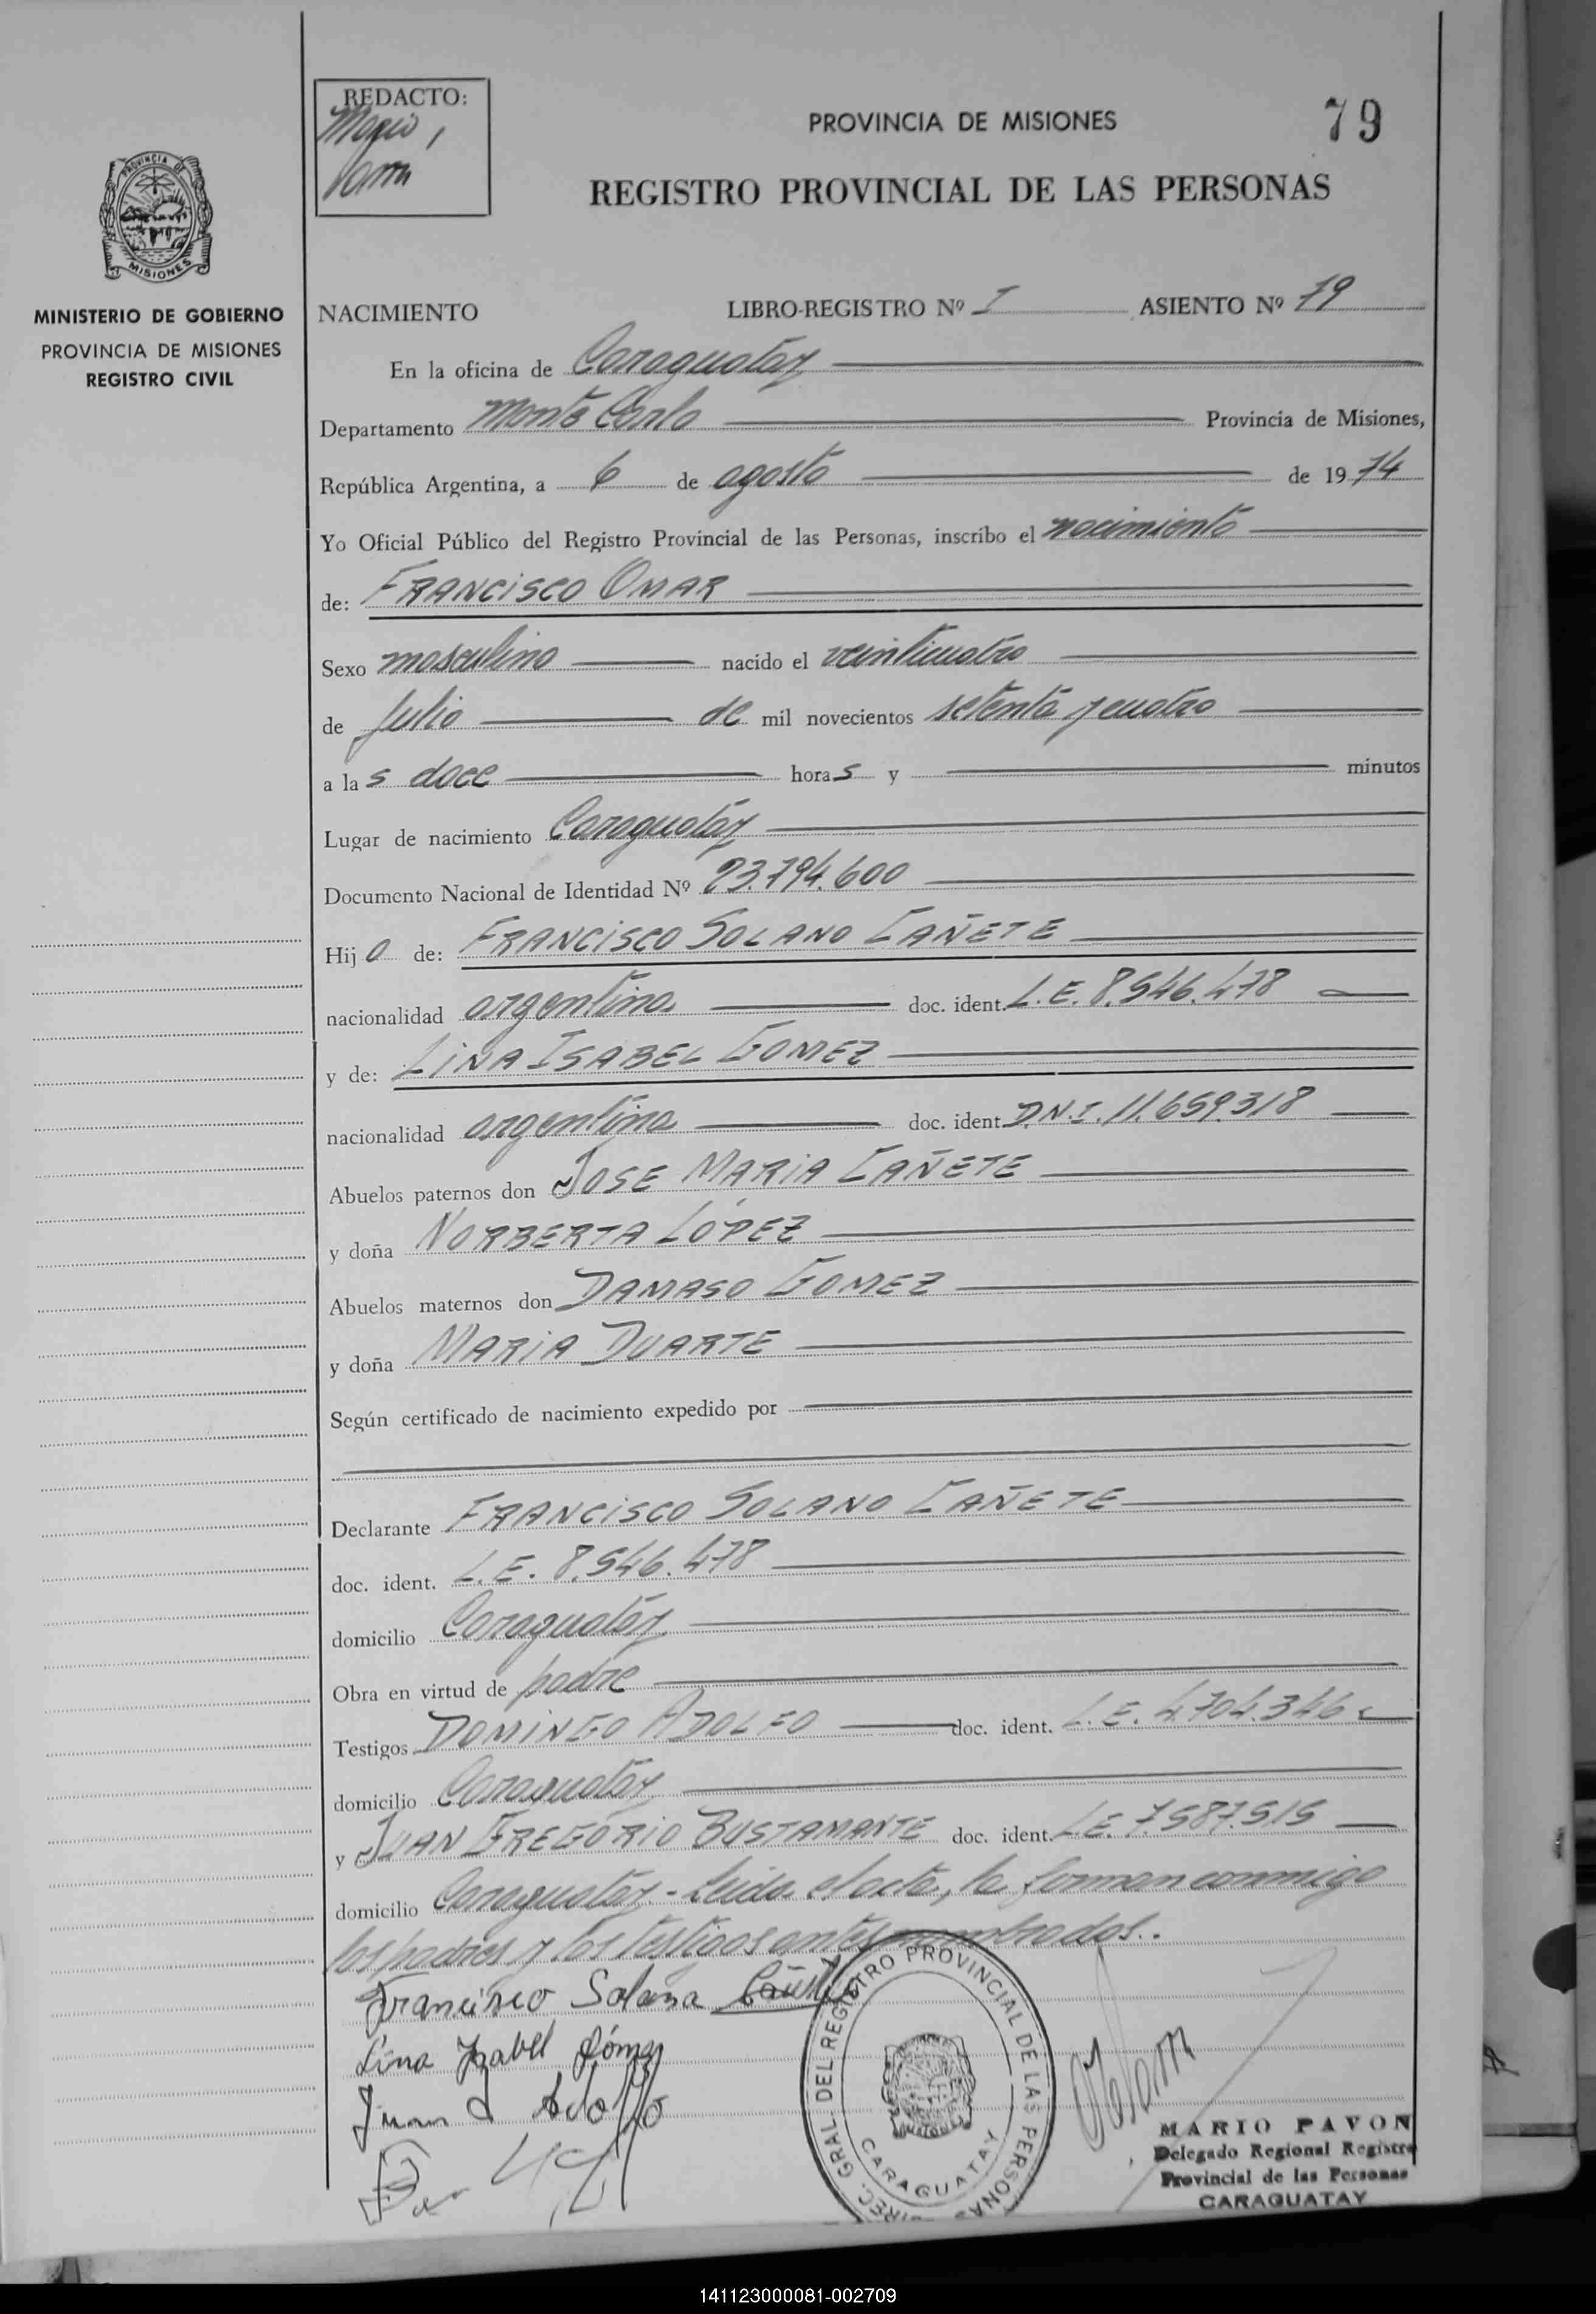 REDACTO:
Mario
PROVINCIA DE MISIONES
79
REGISTRO PROVINCIAL DE LAS PERSONAS
PROVINCIA DE
MISIONES
MINISTERIO DE GOBIERNO
PROVINCIA DE MISIONES
REGISTRO CIVIL
NACIMIENTO LIBRO-REGISTRO Nº I ASIENTO Nº 79
En la oficina de Caraguatay
Departamento Monte Carlo Provincia de Misiones,
República Argentina, a 6 de agosto de 1974
Yo Oficial Público del Registro Provincial de las Personas, inscribo el nacimiento
de: FRANCISCO OMAR
Sexo masculino nacido el veinticuatro
de Julio de mil novecientos setenta y cuatro
a las doce horas y minutos
Lugar de nacimiento Caraguatáy
Documento Nacional de Identidad Nº 23.794.600
Hijo de: FRANCISCO SOLANO CAÑETE
nacionalidad argentina doc. ident. L.E. 8.546.478
y de: LINA ISABEL GOMEZ
nacionalidad argentina doc. ident. D.N.I. 11.659.318
Abuelos paternos don JOSE MARIA CAÑETE
y doña NORBERTA LÓPEZ
Abuelos maternos don DAMASO GOMEZ
y doña MARIA DUARTE
Según certificado de nacimiento expedido por
Declarante FRANCISCO SOLANO CAÑETE
doc. ident. L.E. 8.546.478
domicilio Caraguatáy
Obra en virtud de padre
Testigos DOMINGO ADOLFO doc. ident. L.E. 4.704.346
domicilio Caraguatáy
y JUAN GREGORIO BUSTAMANTE doc. ident. L.E. 7.587.515
domicilio Caraguatáy - Leída el acta, la forman conmigo
los padres y los testigos antes nombrados..
Francisco Solano Cañete
Lina Yzabel Gómez
Juan Adolfo
DIREC. GRAL. DEL REGISTRO PROVINCIAL DE LAS PERSONAS
CARAGUATAY
MARIO PAVON
Delegado Regional Registro
Provincial de las Personas
CARAGUATAY
141123000081-002709